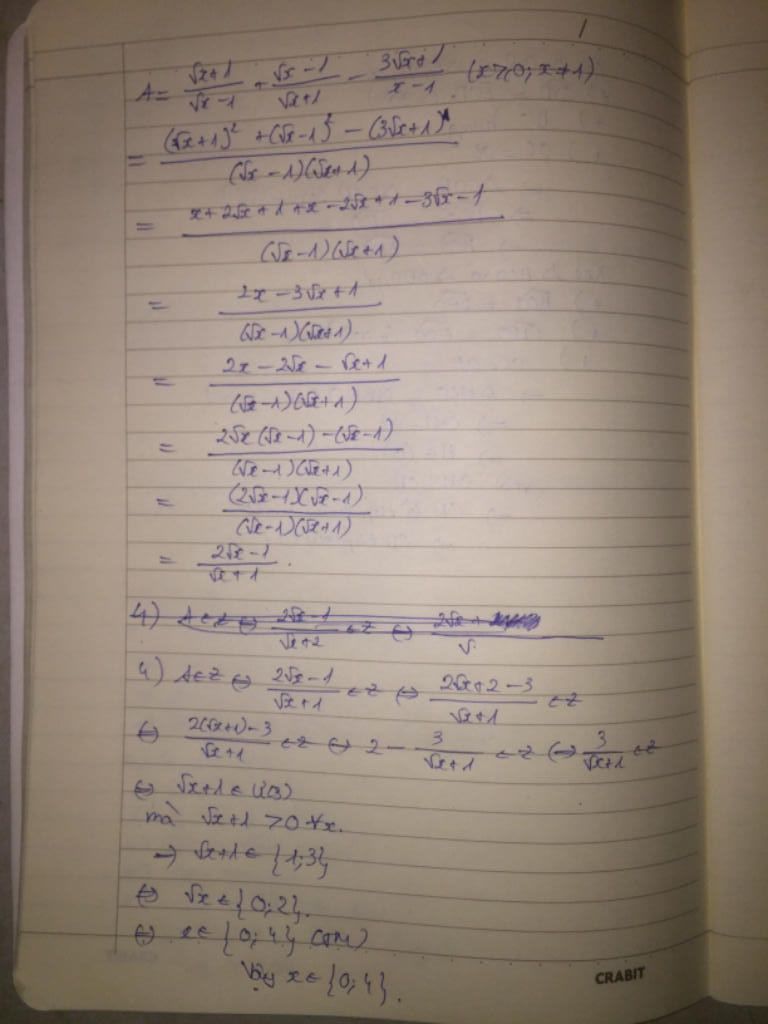 1
A = \frac{√x+1}{√x-1} + \frac{√x-1}{√x+1} - \frac{3√x+1}{x-1} (x≥0; x≠1)
= \frac{(√x+1)² + (√x-1)² - (3√x+1)}{(√x-1)(√x+1)}
= \frac{x+2√x+1+x-2√x+1-3√x-1}{(√x-1)(√x+1)}
= \frac{2x-3√x+1}{(√x-1)(√x+1)}
= \frac{2x-2√x-√x+1}{(√x-1)(√x+1)}
= \frac{2√x(√x-1)-(√x-1)}{(√x-1)(√x+1)}
= \frac{(2√x-1)(√x-1)}{(√x-1)(√x+1)}
= \frac{2√x-1}{√x+1}.
4) A∈Z ⇔ \frac{2√x-1}{√x+2} ∈Z ⇔ \frac{2√x+}{√}
4) A∈Z ⇔ \frac{2√x-1}{√x+1} ∈Z ⇔ \frac{2√x+2-3}{√x+1} ∈Z
⇔ \frac{2(√x+1)-3}{√x+1} ∈Z ⇔ 2 - \frac{3}{√x+1} ∈Z ⇔ \frac{3}{√x+1} ∈Z
⇔ √x+1 ∈ Ư(3)
mà √x+1 >0 ∀x.
⇒ √x+1 ∈ {1;3}
⇔ √x ∈ {0;2}.
⇔ x ∈ {0;4} (TM)
Vậy x ∈ {0;4}.
CRABIT
CRABIT